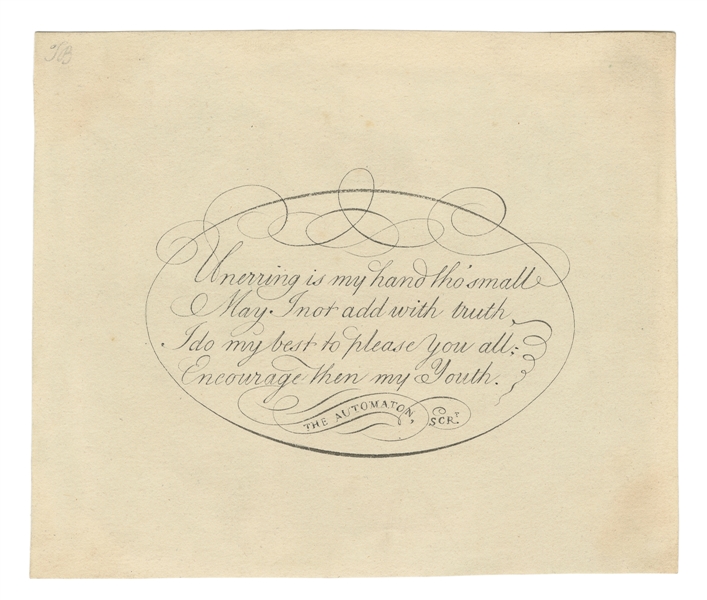 Unerring is my hand tho' small
May I not add with truth
I do my best to please you all;
Encourage then my Youth.
THE AUTOMATON,
SCR.T